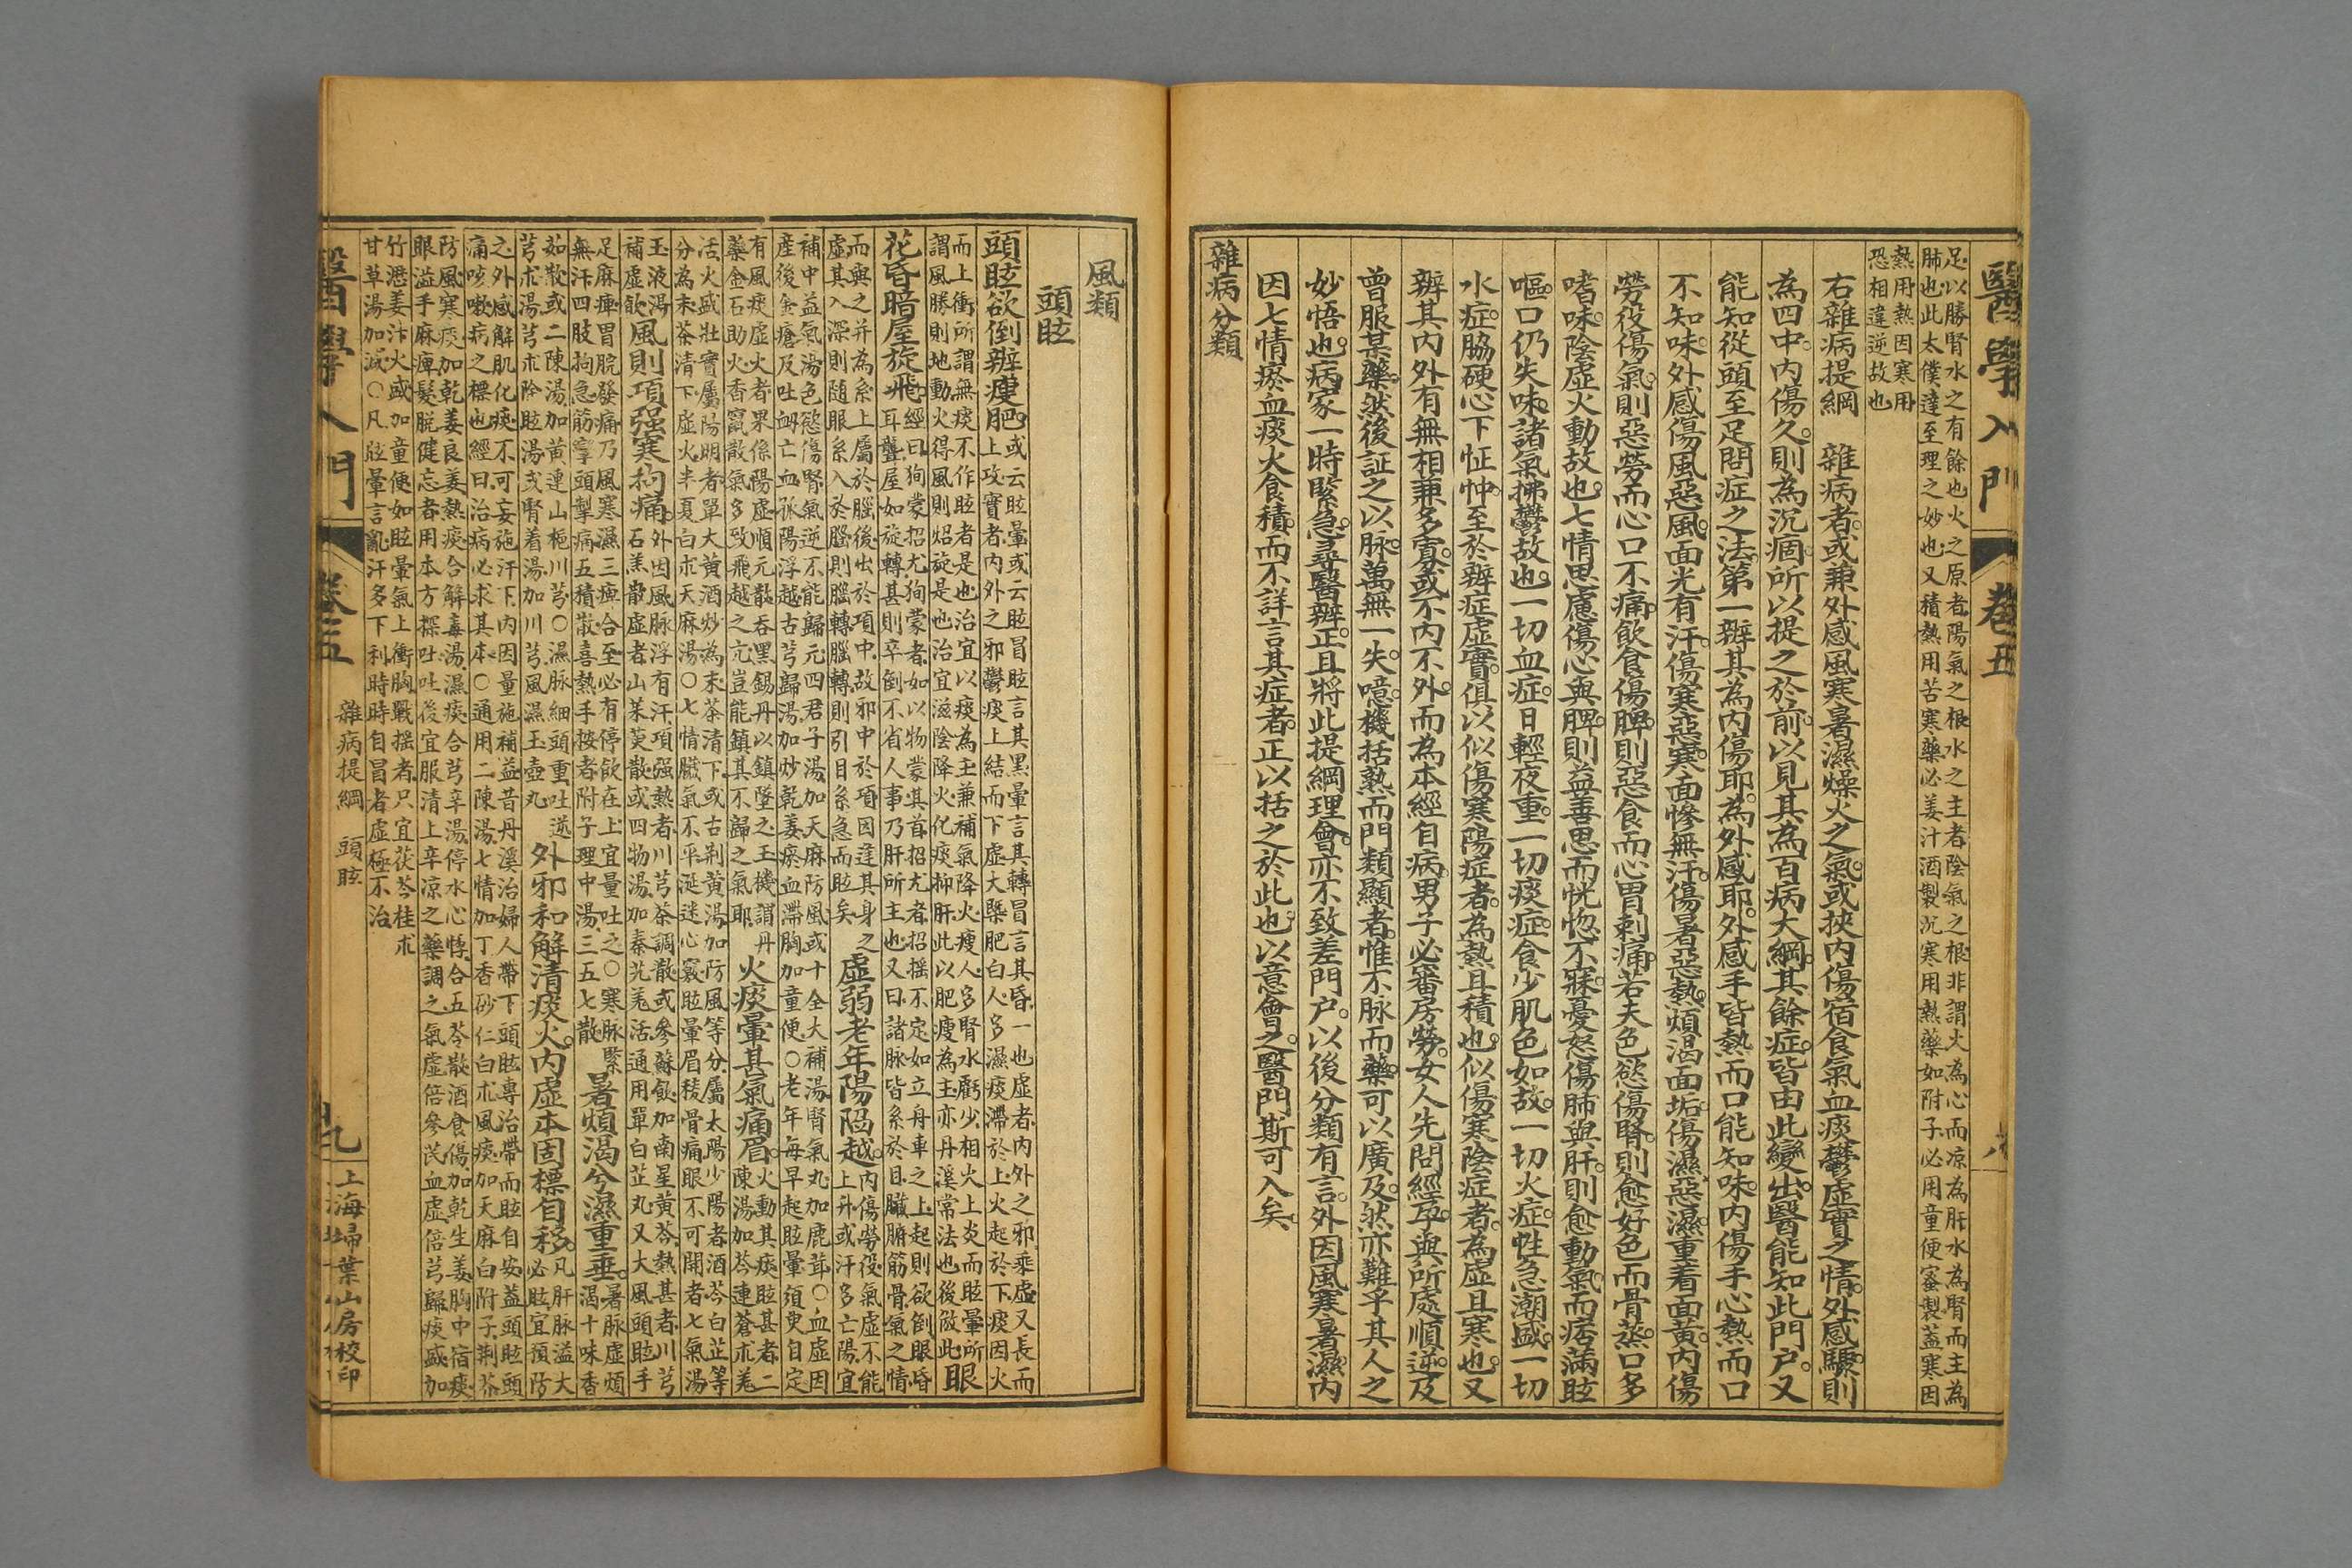 醫學入門 卷五
足以勝腎水之有餘也火之原者陽氣之根水之主者陰氣之根非謂火為心而凉為肝水為腎而主為
肺也此太僕達至理之妙也又積熱用苦寒藥必姜汁酒製沉寒用熱藥如附子必用童便蜜製蓋寒因
熱用熱因寒用
恐相違逆故也
右雜病提綱 雜病者或兼外感風寒暑濕燥火之氣或挾內傷宿食氣血痰鬱虛實之情外感驟則
為四中內傷久則為沉痼所以提之於前以見其為百病大綱其餘症皆由此變出醫能知此門户又
能知從頭至足問症之法第一辨其為內傷耶為外感耶外感手皆熱而口能知味內傷手心熱而口
不知味外感傷風惡風面光有汗傷寒惡寒面慘無汗傷暑惡熱煩渴面垢傷濕惡濕重着面黃內傷
勞役傷氣則惡勞而心口不痛飲食傷脾則惡食而心胃刺痛若夫色慾傷腎則愈好色而骨蒸口多
嗜味陰虛火動故也七情思慮傷心與脾則益善思而恍惚不寐憂怒傷肺與肝則愈動氣而痞滿眩
嘔口仍失味諸氣拂鬱故也一切血症日輕夜重一切痰症食少肌色如故一切火症性急潮盛一切
水症脇硬心下怔忡至於辨症虛實俱以似傷寒陽症者為熱且積也似傷寒陰症者為虛且寒也又
辨其內外有無相兼多寡或不內不外而為本經自病男子必審房勞女人先問經孕與所處順逆及
曾服某藥然後証之以脉萬無一失噫機括熟而門類顯者惟不脉而藥可以廣及然亦難乎其人之
妙悟也病家一時緊急尋醫辨正且將此提綱理會亦不致差門户以後分類有言外因風寒暑濕內
因七情瘀血痰火食積而不詳言其症者正以括之於此也以意會之醫門斯可入矣
雜病分類
風類
頭眩
頭眩欲倒辨瘦肥或云眩暈或云眩冒眩言其黑暈言其轉冒言其昏一也虛者內外之邪乘虛又長而
上攻實者內外之邪鬱痰上結而下虛大槩肥白人多濕痰滯於上火起於下痰因火
而上衝所謂無痰不作眩者是也治宜以痰為主兼補氣降火瘦人多腎水虧少相火上炎而眩暈所
謂風勝則地動火得風則焰旋是也治宜滋陰降火化痰抑肝此以肥瘦為主亦丹溪常法也後倣此眼
花昏暗屋旋飛經曰狥蒙招尤狥蒙者如以物蒙其首招尤者招摇不定如立舟車之上起則欲倒眼昏
耳聾屋如旋轉甚則卒倒不省人事乃肝所主也又曰諸脉皆系於目臟腑筋骨氣之情
而與之并為系上屬於腦後出於項中故邪中於項因逢其身之
虛其入深則隨眼系入於腦則腦轉腦轉則引目系急而眩矣虛弱老年陽陷越內傷勞役氣虛不能
上升或汗多亡陽宜
補中益氣湯色慾傷腎氣逆不能歸元四君子湯加天麻防風或十全大補湯腎氣丸加鹿茸○血虛因
產後金瘡及吐衂亡血孤陽浮越古芎歸湯加炒乾姜瘀血滯胸加童便○老年每早起眩暈須臾自定
有風痰虛火者果係陽虛順元散吞黑錫丹以鎮墜之玉機謂丹
藥金石助火香竄散氣多致飛越之亢豈能鎮其不歸之氣耶火痰暈甚氣痛眉火動其痰眩甚者二
陳湯加芩連蒼朮羌
活火盛壯實屬陽明者單大黃酒炒為末茶清下或古荆黃湯加防風等分屬太陽少陽者酒芩白芷等
分為末茶清下虛火半夏白朮天麻湯○七情臟氣不平涎迷心竅眩暈眉稜骨痛眼不可開者七氣湯
玉液湯
補虛飲風則項强寒拘痛外因風脉浮有汗項强熱者川芎茶調散或參蘇飲加南星黃芩熱甚者川芎
石羔散虛者山茱萸散或四物湯加秦艽羌活通用單白芷丸又大風頭眩手
足麻痺胃脘發痛乃風寒濕三痺合至必有停飲在上宜量吐之○寒脉緊
無汗四肢拘急筋攣頭掣痛五積散喜熱手按者附子理中湯三五七散暑煩渴兮濕重垂暑脉虛煩
渴十味香
茹散或二陳湯加黃連山梔川芎○濕脉細頭重吐逆
芎朮湯芎朮除眩湯或腎着湯加川芎風濕玉壺丸外邪和解清痰火內虛本固標自移凡肝脉溢大
必眩宜預防
之外感解肌化痰不可妄施汗下內因量施補益昔丹溪治婦人帶下頭眩專治帶而眩自安益頭眩頭
痛咳嗽病之標也經曰治病必求其本○通用二陳湯七情加丁香砂仁白朮風痰加天麻白附子荆芥
防風寒痰加乾姜良姜熱痰合解毒湯濕痰合芎辛湯停水心悸合五苓散酒食傷加乾生姜胸中宿痰
眼溢手麻痺髮脱健忘者用本方探吐吐後宜服清上辛凉之藥調之氣虛倍參芪血虛倍芎歸痰盛加
竹瀝姜汁火盛加童便如眩暈氣上衝胸戰摇者只宜茯苓桂朮
甘草湯加減○凡眩暈言亂汗多下利時時自冒者虛極不治
醫學入門 卷五 雜病提綱 頭眩 九 上海埽葉山房校印